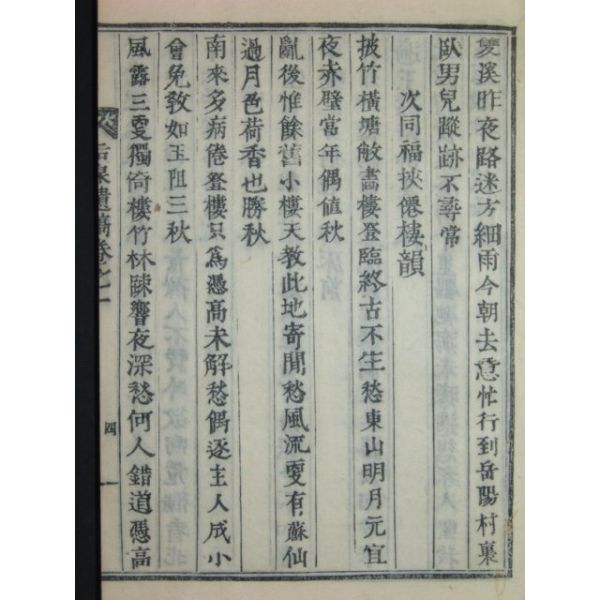 雙溪昨夜路迷方細雨今朝去意忙行到岳陽村裏
臥男兒蹤跡不尋常
次同福挾僊樓韻
披竹橫塘敞畵樓登臨終古不生愁東山明月元宜
夜赤壁當年偶値秋
亂後惟餘舊小樓天教此地寄閒愁風流更有蘇仙
過月色荷香也勝秋
南來多病倦登樓只爲憑高未解愁偶逐主人成小
會免敎如玉阻三秋
風露三更獨倚樓竹林踈響夜深愁何人錯道憑高
遺稿卷之一
四